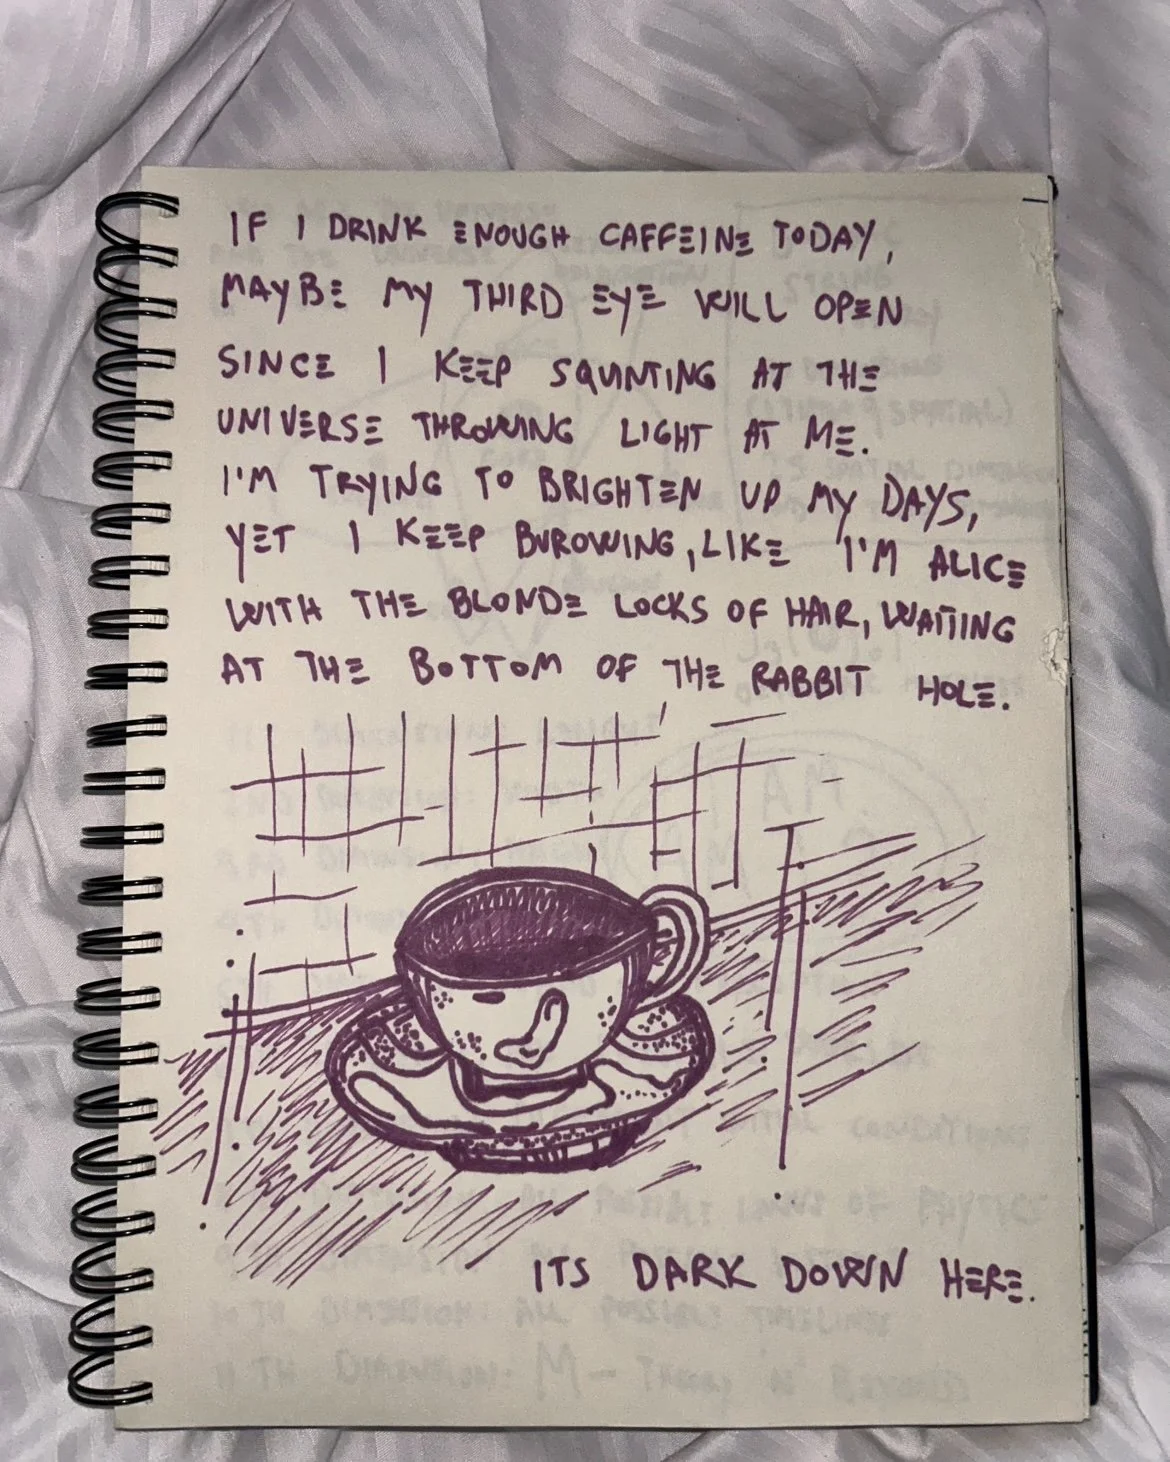 IF I DRINK ENOUGH CAFFEINE TODAY,
MAYBE MY THIRD EYE WILL OPEN
SINCE I KEEP SQUNTING AT THE
UNIVERSE THROWING LIGHT AT ME.
I'M TRYING TO BRIGHTEN UP MY DAYS,
YET I KEEP BUROWING, LIKE I'M ALICE
WITH THE BLONDE LOCKS OF HAIR, WAITING
AT THE BOTTOM OF THE RABBIT HOLE.
ITS DARK DOWN HERE.